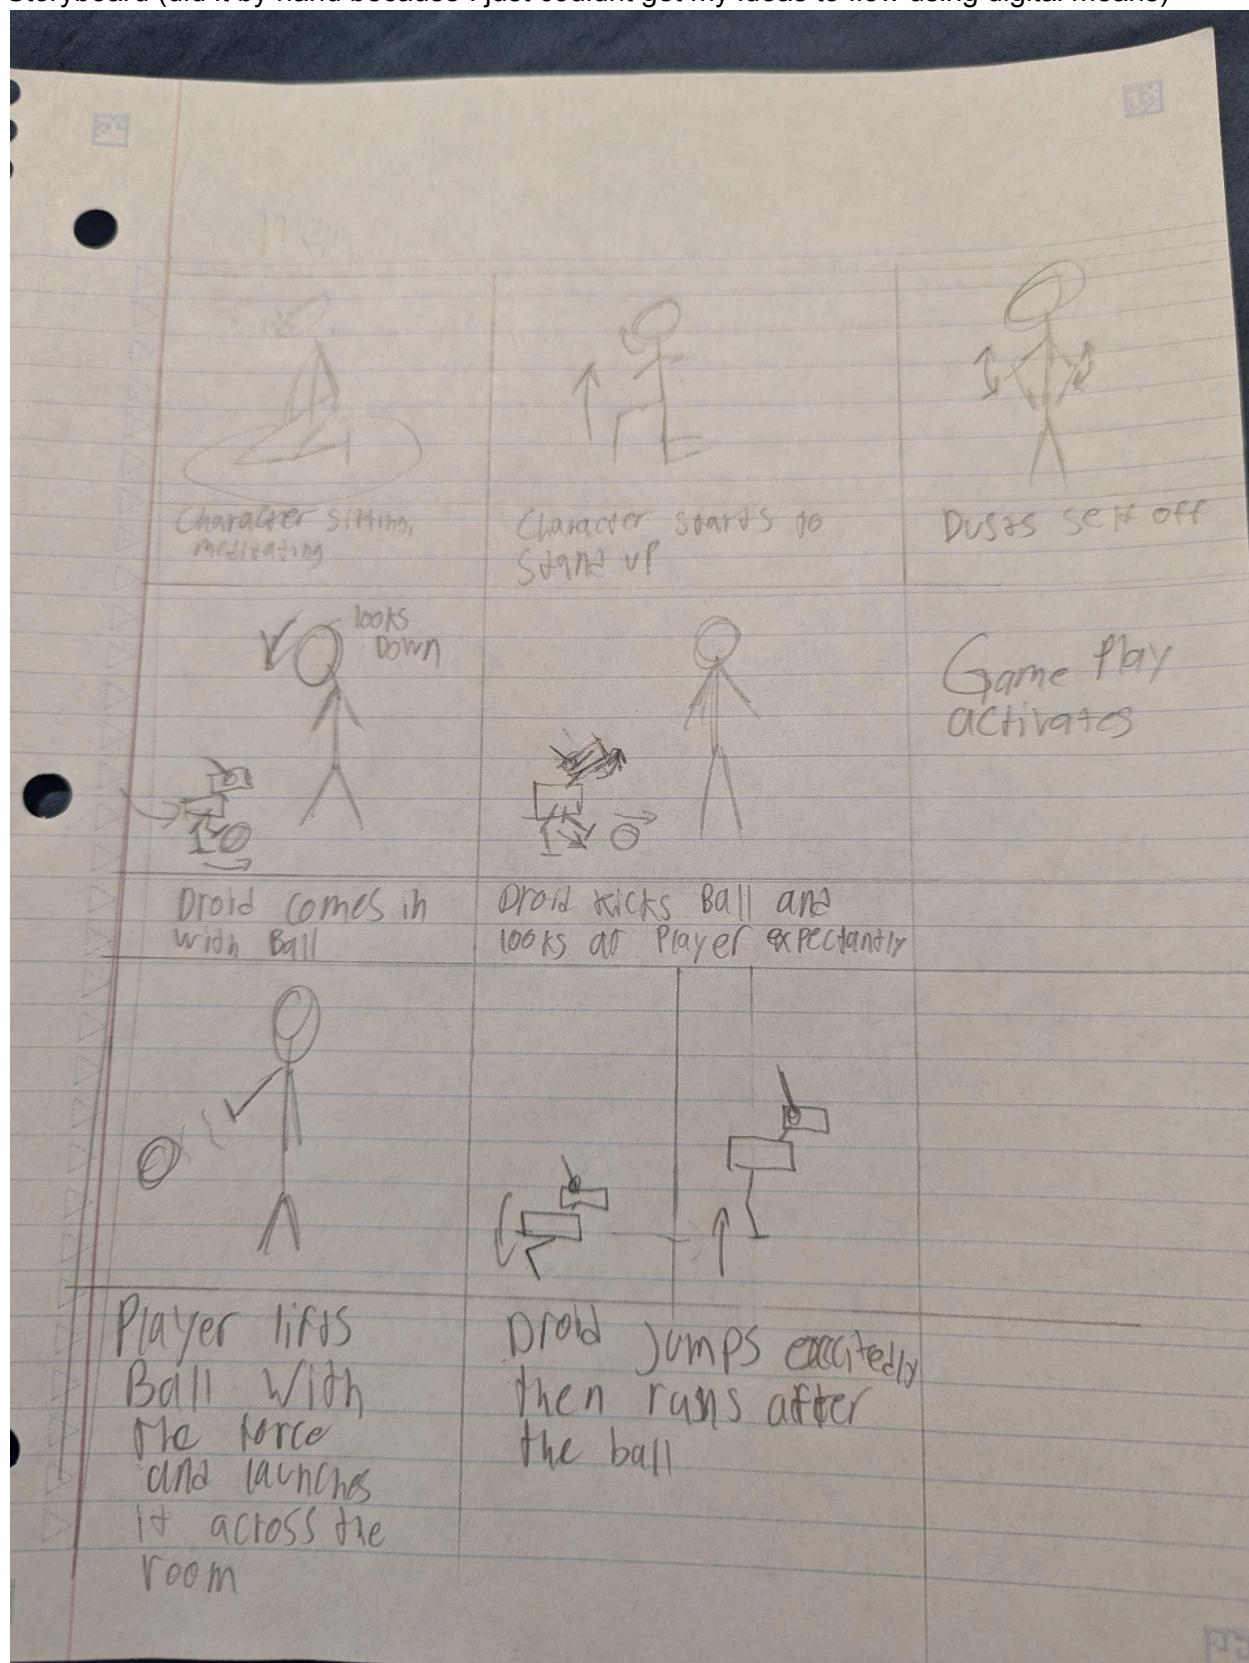 Storyboard (did it by hand because I just couldnt get my ideas to flow using digital means)
Character sitting,
meditating
Character starts to
stand up
Dusts self off
looks
Down
Game Play
activates
Droid comes in
with Ball
Droid kicks Ball and
looks at Player expectantly
Player lifts
Ball with
the force
and launches
it across the
room
Droid jumps exccitedly
then runs after
the ball